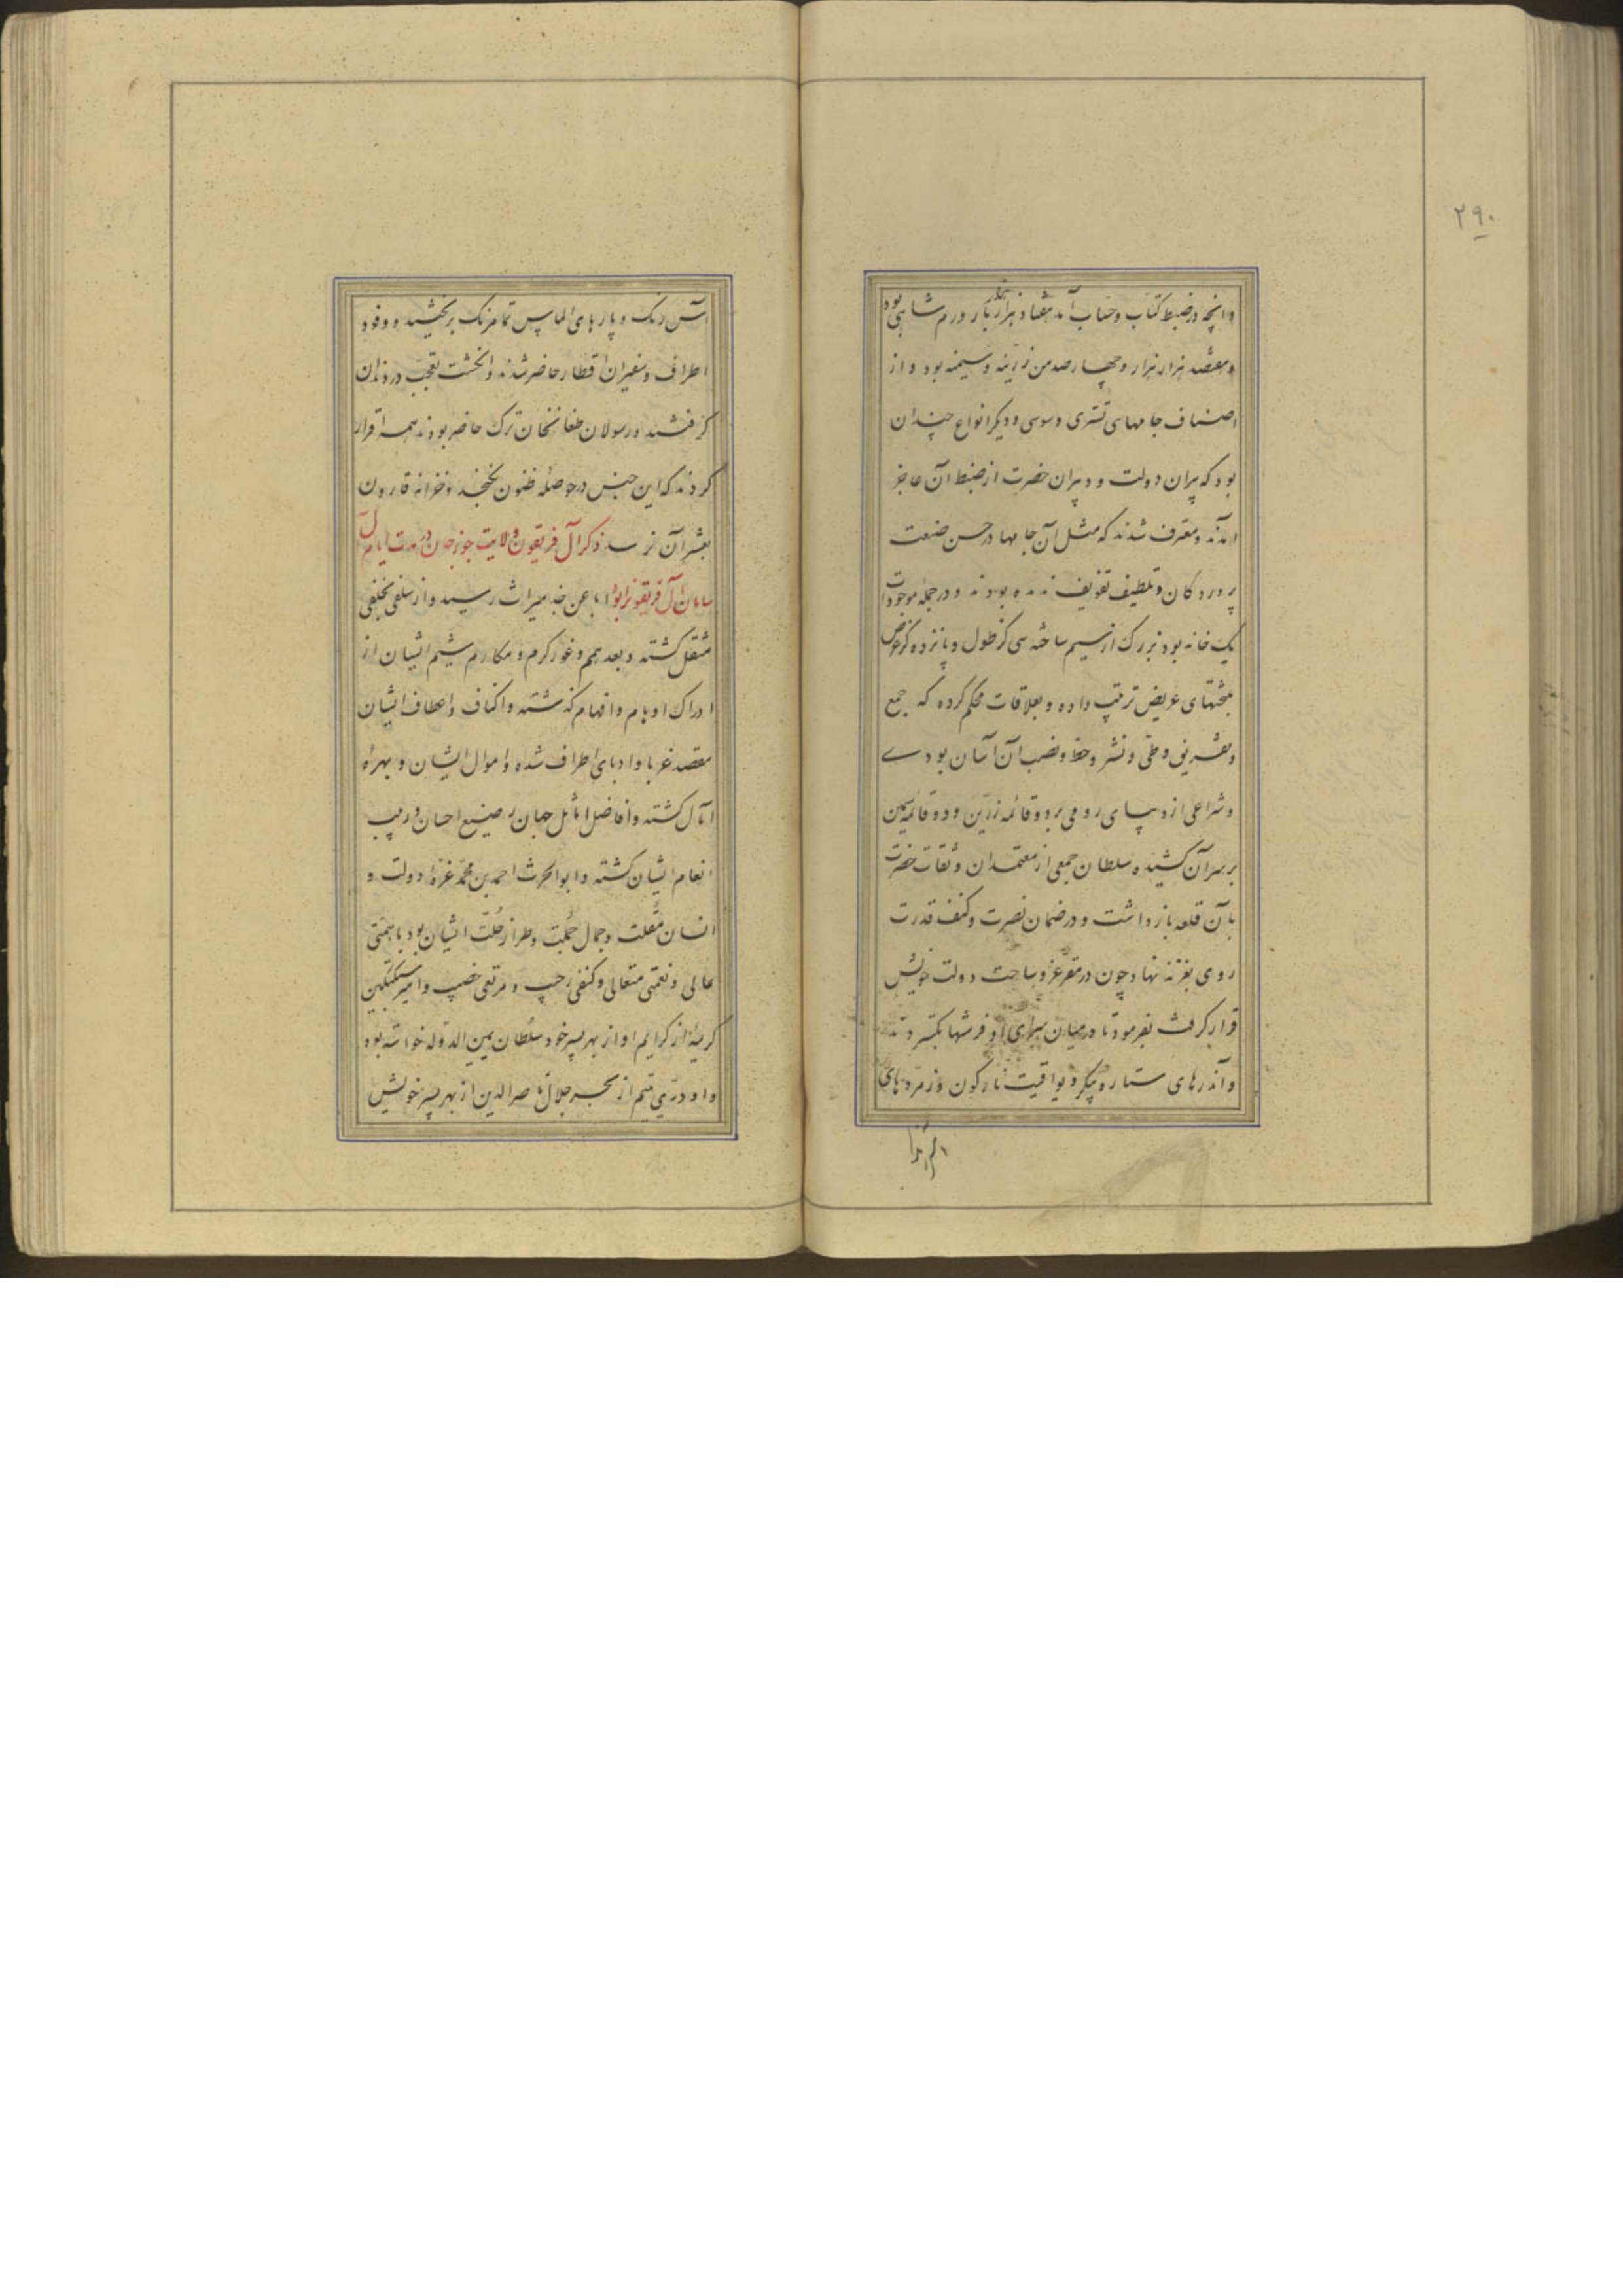 ۲۹۰
و آنچه در ضبط کتاب و حساب آمد هفتاد هزار هزار بار درم شاهی بود
و هفتصد هزار هزار و چهارصد من زرینه و سیمینه بود و از
اصناف جامهای تستری و سوسی و دیگر انواع چندان
بود که پیران دولت و دبیران حضرت از ضبط آن عاجز
آمدند و معترف شدند که مثل آن جامها در حسن صنعت
و تلطیف تفویف ندیده بودند و در جمله موجودات
یک خانه بود بزرک از سیم ساخته سی کز طول و پانزده کز عرض
بتختهای عریض ترتیب داده و بعلاقات محکم کرده که جمع
و تفریق و طی و نشر و حط و نصب آن آسان بودے
و شراعی از دیبای رومی بر دو قائمه زرین و دو قائمه سیمین
بر سر آن کشیده و سلطان جمعی از معتمدان و ثقات حضرت
بآن قلعه بازداشت و در ضمان نصرت و کنف قدرت
روی بغزنه نهاد و چون در مقر عز و ساحت دولت خویش
قرار کرفت بفرمود تا در میان سرای او فرشها بکستردند
و آن درهای ستاره پیکر و یواقیت نارکون و زمردهای
آس رنک و پارهای الماس تمامرنک بر وفود
اطراف و سفیران اقطار حاضر شدند و انکشت تعجب در دندان
کرفتند و رسولان طغانخان ترک حاضر بودند همه اقرار
کردند که این جنس در حوصله ظنون نکنجد و خزانه قارون
بعشر آن نرسد ذکر آل فریغون ولایت جوزجان در مدت ایام آل
سامان آل فریغون را بود ابا عن جد میراث رسیده و از سلفی بخلفی
منتقل کشته و بعد همم و غور کرم و مکارم شیم ایشان از
ادراک اوهام و افهام کذشته و اکناف و اعطاف ایشان
مقصد غربا و ادبای اطراف شده و اموال ایشان و بهراه
آمال کشته و افاضل اماثل جهان صنیع احسان و ربیب
انعام ایشان کشته و ابوالحرث احمد بن محمد غره دولت و
انسان مقلت و جمال جملت و طراز حلت ایشان بود با همتی
عالی و نعمتی متعالی و کنفی رحیب و مرتعی خصیب و امیر سبکتکین
کریمه از کرایم او از بهر پسر خود سلطان یمین الدوله خواسته بود
و او دری یتیم از بحر جلال ناصرالدین از بهر پسر خویش